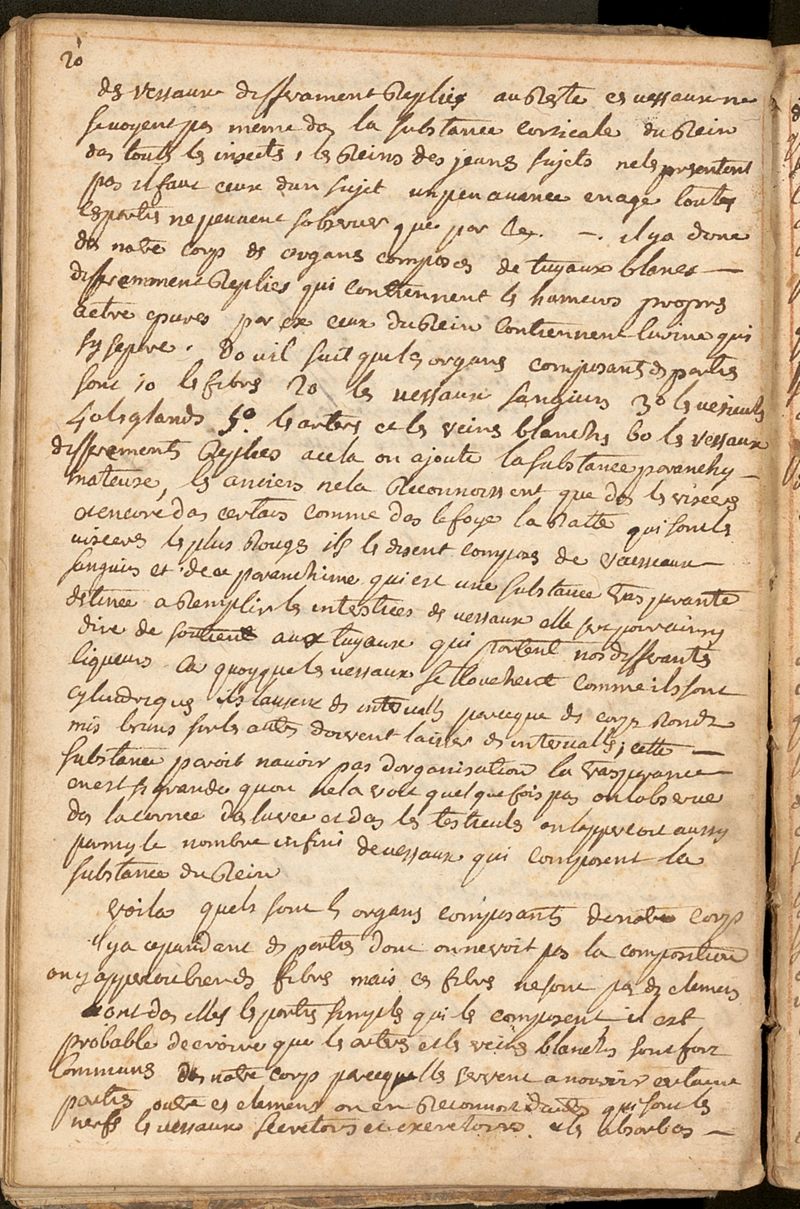 20
des vessaux differament Replies au Reste ces vessaux ne
se voyent pas meme das la substance corticale du Rein
das touts les insects, les Reins des jeunes sujets ne les presentent
pas il faut ceux dun sujet un peu avancé en age toutes
ces parties ne peuvent sobserver que par lex. —. il ya donc
ds notre corp des organs composés de tuyaux blancs —
differemment Replies qui contiennent les humeurs propres
a etre epurés par ex ceux du Rein contiennent lurine qui
sy sepere. Dou il suit que les organs composants des parties
sont 1o les fibres 2o les vessaux sanguins 3o les vesicules
4o les glands 5o les arters et les veins blanchs 6o les vessaux
differements Replies a cela on ajoute la substance paranchy —
mateuse, les anciens ne la Reconnoissent que das les visceres
et encore das certains comme das le foye la Ratte qui sont les
visceres les plus Rouges ils les disent composes de vaisseaux —
sanguins et de ce paranchime qui est une substance trasparante
destinee a Remplir les interstices des vessaux elle sert pour ainsy
dire de soutient aux tuyaux qui portent nos differants
liqueurs Ca quoyque les vessaux se touchent comme ils sont
cylindriques ils laissent des intervalls parceque des corps Ronds
mis les uns sur les autres doivent laisser des intervalls; cette —
substance paroit navoir pas dorganisation la trasparance —
en est si grande quon ne la voit quelque fois pas on lobserve
das la cornee das luvee et das les testicules on lappercoit aussy
parmy le nombre infini de vessaux qui composent la
substance du Rein
Voila quels sont les organs composants de notre corp
il ya cependant des parties dont on ne voit pas la composition
on y appercoit bien des fibres mais ces fibres ne sont pas des elemens
ont das elles les parties simples qui les composent, il est
probable de croire que les arters et les veins blanchs sont fort
communs ds notre corp parcequ elles servent a nourir certaine
parties outre ces elemens on en Reconnoit dautres qui sont les
nerfs les vessaux secretoirs et excretoirs. et les absorbas —